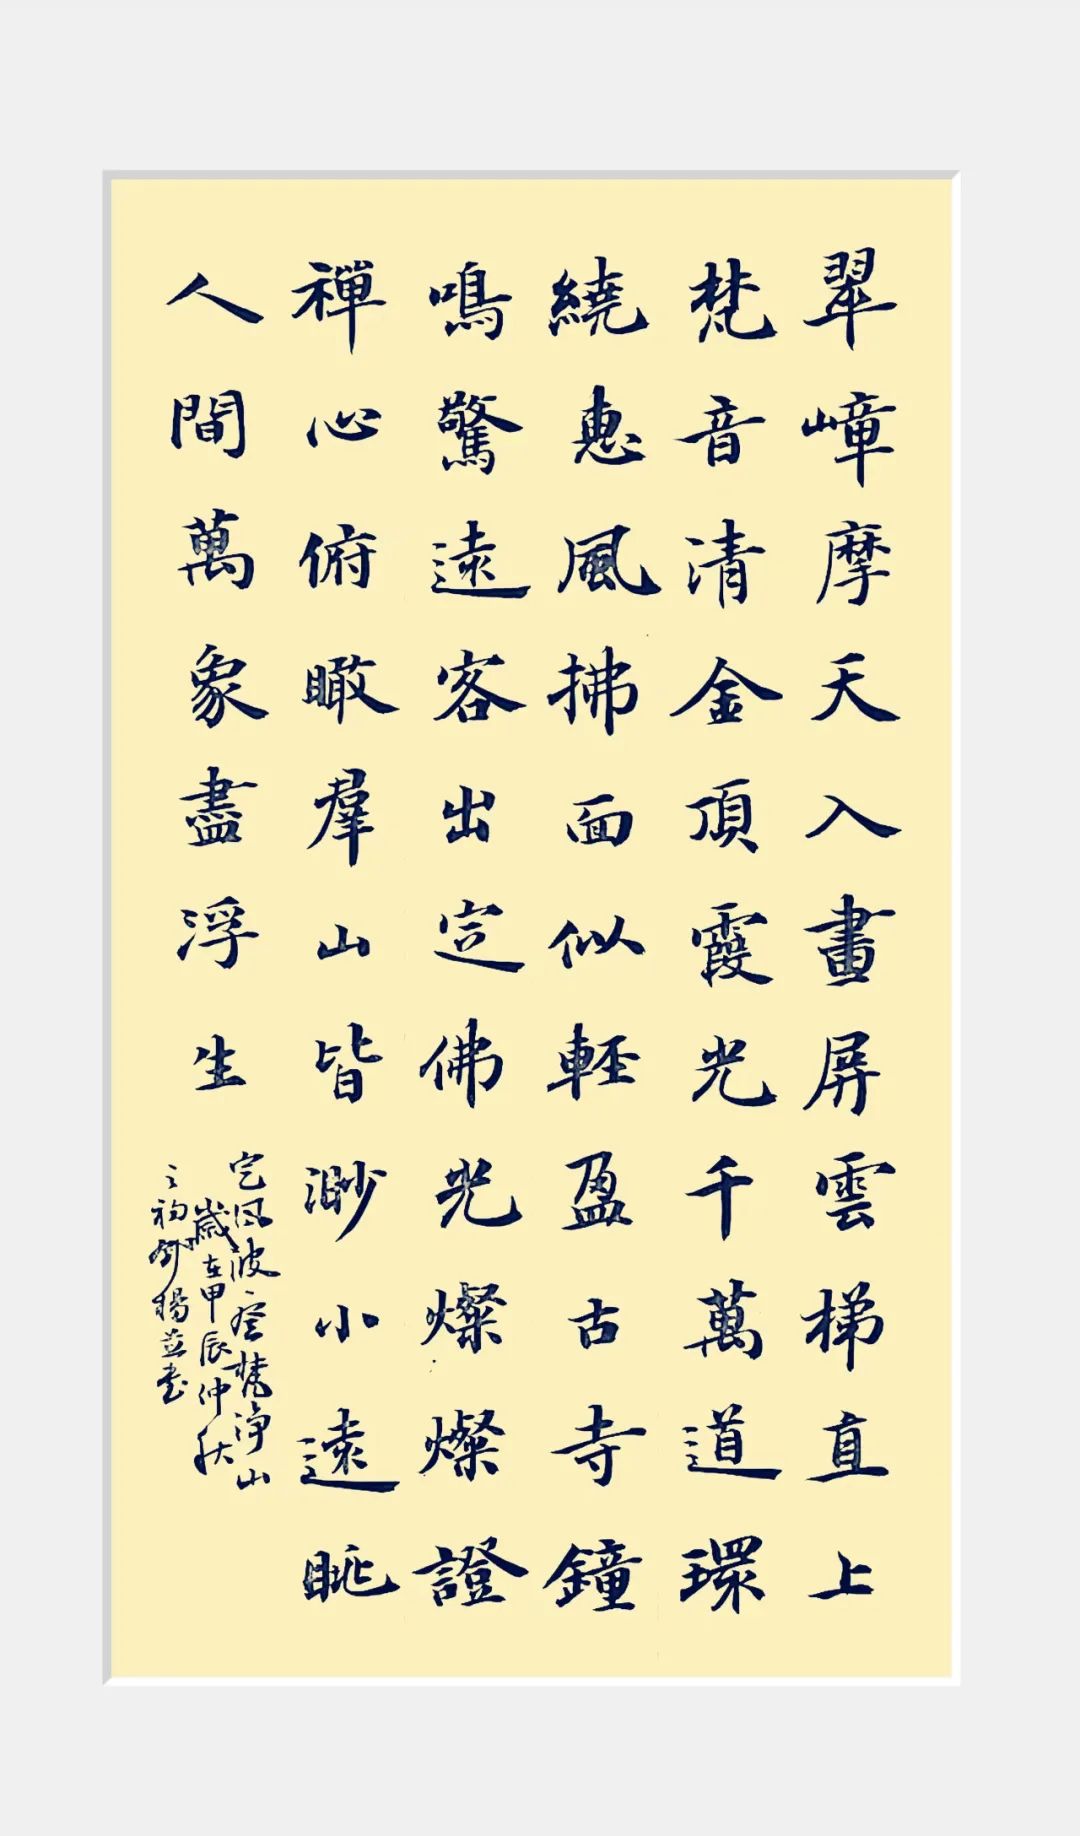 翠嶂摩天入畫屏雲梯直上
梵音清金頂霞光千萬道環
繞惠風拂面似輕盈古寺鐘
鳴驚遠客出定佛光燦燦證
禪心俯瞰羣山皆渺小遠眺
人間萬象盡浮生
定風波·登梵淨山
歲在甲辰仲秋
之初 楊 书